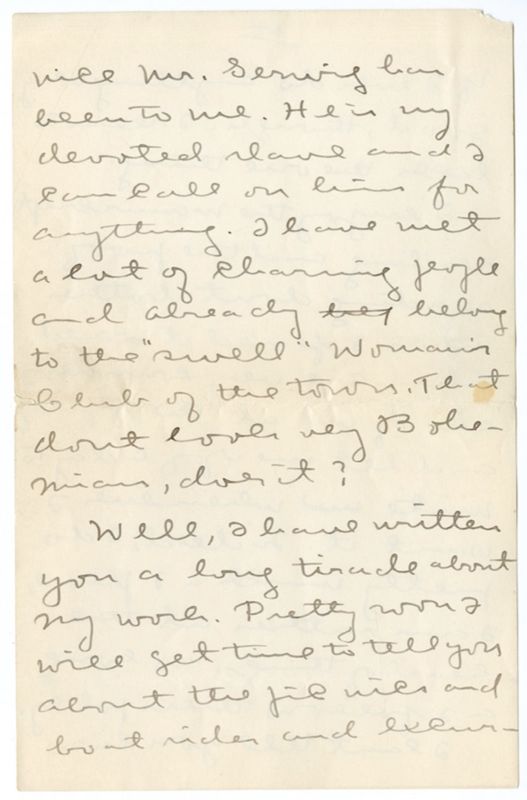 nice Mr. Gerwig has
been to me. He is my
devoted slave and I
can call on him for
anything. I have met
a lot of charming people
and already belong
to the "swell" Woman's
Club of the town. That
dont look very Bohe-
mian, does it?
Well, I have written
you a long tirade about
my work. Pretty soon I
will get time to tell you
about the pic nics and
boat rides and excur-